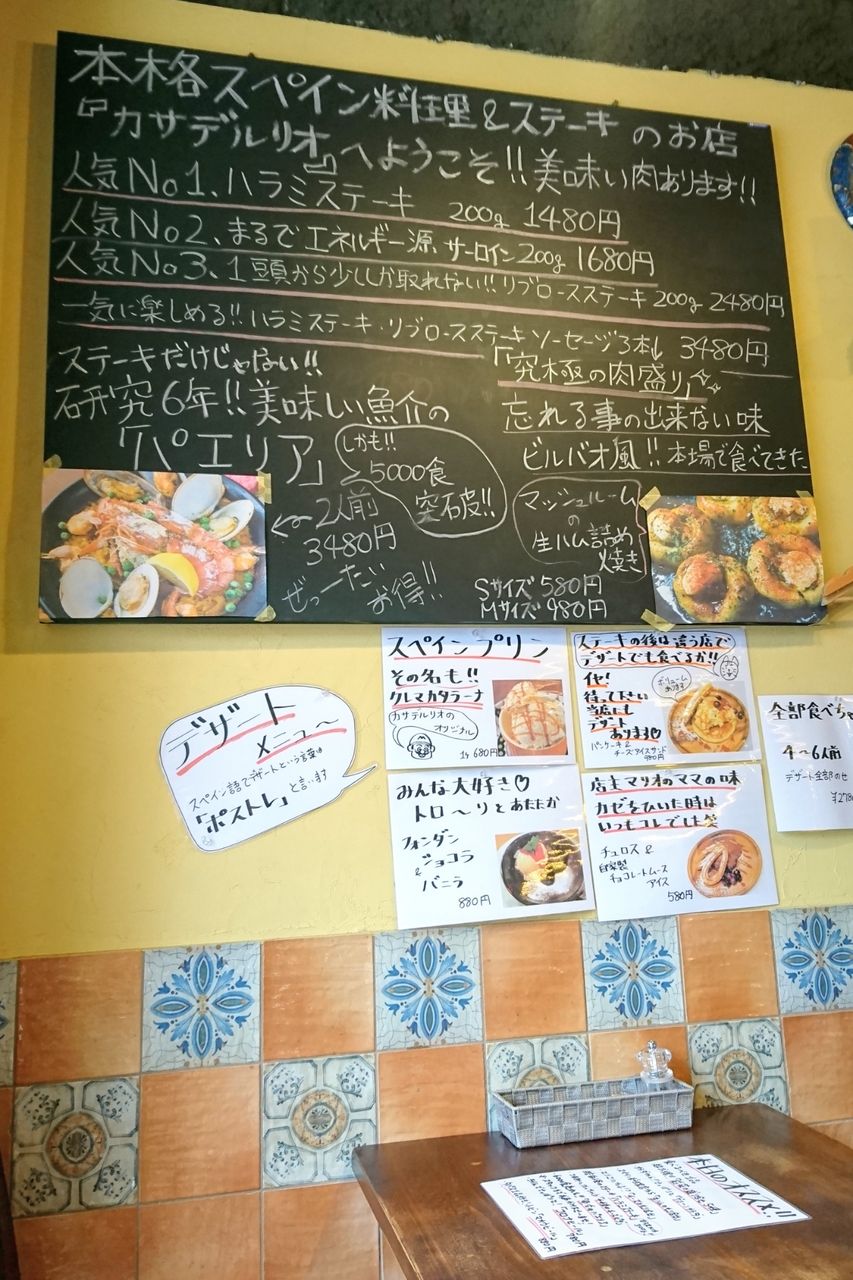 本格スペイン料理&ステーキのお店
『カサデルリオ』へようこそ!!美味い肉あります!!
人気No1、ハラミステーキ 200g 1480円
人気No2、まるでエネルギー源、サーロイン200g 1680円
人気No3、1頭から少ししか取れない!!リブロースステーキ200g 2480円
一気に楽しめる!!ハラミステーキ・リブロースステーキソーセージ3本 3480円
「究極の肉盛り」
ステーキだけじゃない!!
研究6年!!美味しい魚介の
「パエリア」
しかも!!
5000食
突破!!
←2人前
3480円
ぜったい
お得!!
忘れる事の出来ない味
ビルバオ風!!本場で食べてきた
マッシュルーム
の
生ハム詰め
焼き
Sサイズ 580円
Mサイズ 980円
デザート
メニュー〜
スペイン語でデザートという言葉は
「ポストレ」と言います
スペインプリン
その名も!!
クレマカタラーナ
カサデルリオの
オリジナル
1ヶ680円
ステーキの後は違う店で
デザートでも食べるか!!
イヤ!
待って下さい
当店にも
デザート
あります♡
ボリューム
あります
パンケーキ&
チーズアイスサンド
980円
みんな大好き♡
トロ〜リとあたたか
フォンダン
ショコラ
&
バニラ
880円
店主マリオのママの味
カゼをひいた時は
いつもコレでした笑
チュロス&
自家製
チョコレートムース
アイス
580円
全部食べちゃ
4〜6人前
デザート全部のせ
本日のオススメ!!